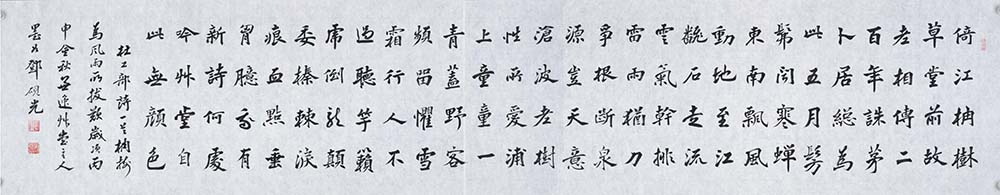 倚江柟樹
草堂前故
老相傳二
百年誅茅
卜居総為
此五月髣
髴聞寒蟬
東南飄風
動地至江
飜石走流
雲氣幹排
雷雨猶力
爭根斷泉
源豈天意
滄波老樹
性所愛浦
上童童一
青蓋野客
頻留懼雪
霜行人不
過聽竽籟
虎倒龍顛
委榛棘淚
痕血點垂
胷臆我有
新詩何處
吟艸堂自
此無顏色
杜工部詩一首柟樹
為風雨所拔歎歲次丙
申金秋無逸艸堂主人
鄧硯光